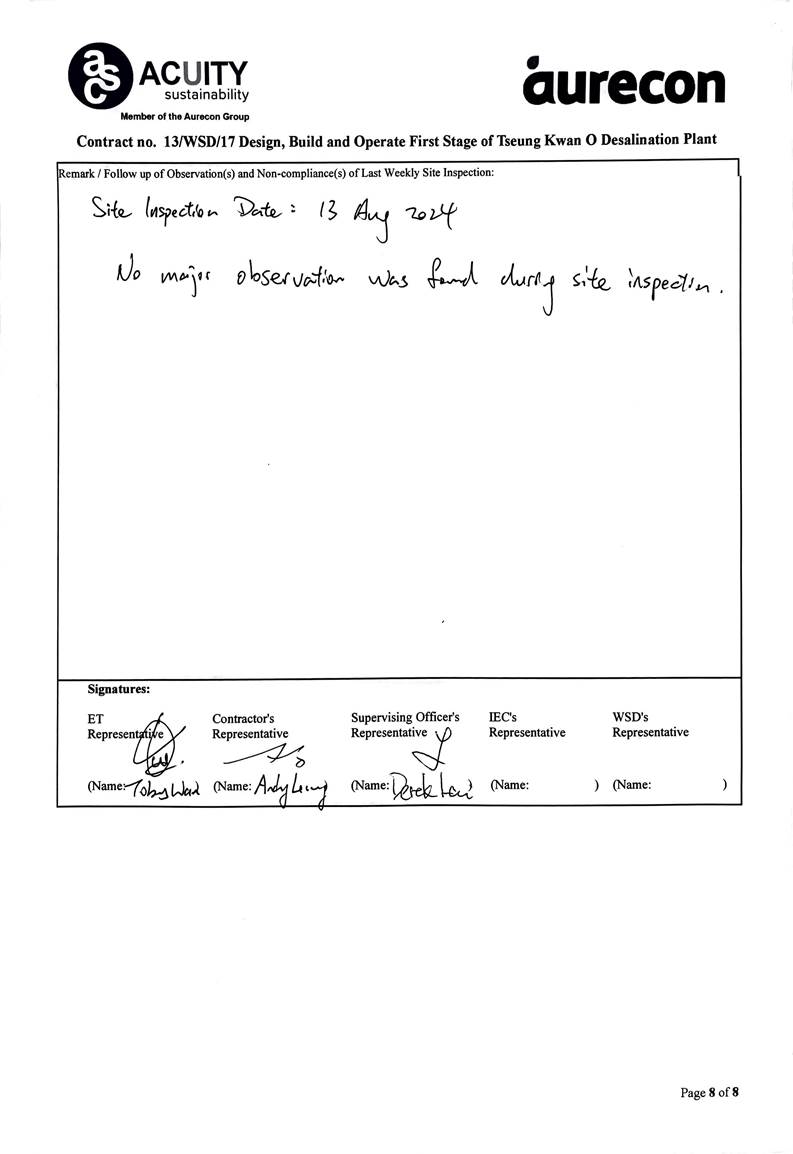 asc ACUITY
sustainability
Member of the Aurecon Group
aurecon
Contract no. 13/WSD/17 Design, Build and Operate First Stage of Tseung Kwan O Desalination Plant
Remark / Follow up of Observation(s) and Non-compliance(s) of Last Weekly Site Inspection:
Site Inspection Date : 13 Aug 2024
No major observation was found during site inspection.
Signatures:
ET Contractor's Supervising Officer's IEC's WSD's
Representative Representative Representative Representative Representative
(Name: Toby (Name: Andy Leung (Name: Derek (Name: ) (Name: )
Page 8 of 8